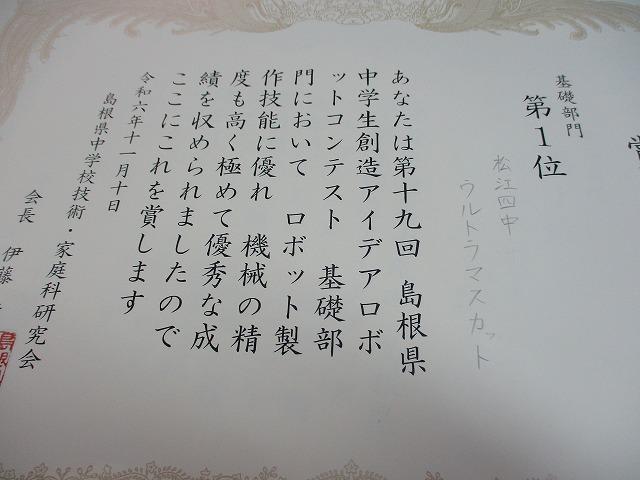 賞
基礎部門
第1位
松江四中
ウルトラマスカット
あなたは第十九回 島根県
中学生創造アイデアロボ
ットコンテスト 基礎部
門において ロボット製
作技能に優れ 機械の精
度も高く極めて優秀な成
績を収められましたので
ここにこれを賞します
令和六年十一月十日
島根県中学校技術・家庭科研究会
会長 伊藤